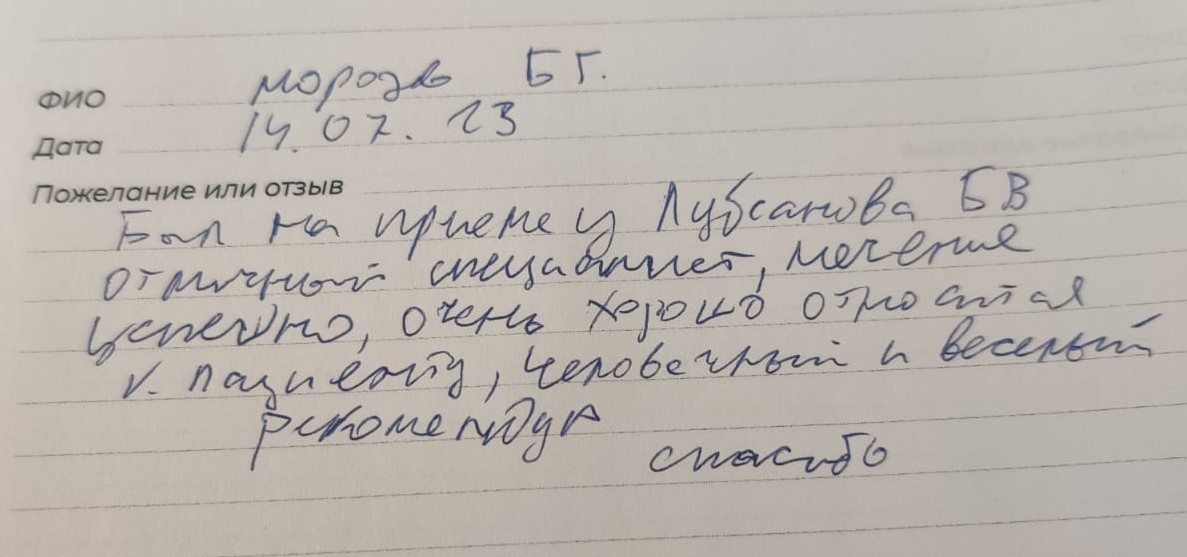 ФИО Морозов Б Г.
Дата 14.07.23
Пожелание или отзыв
Был на приеме у Лубсанова Б В
отличный специалист, лечение
успешно, очень хорошо относится
к пациенту, человечный и веселый
рекомендую
спасибо